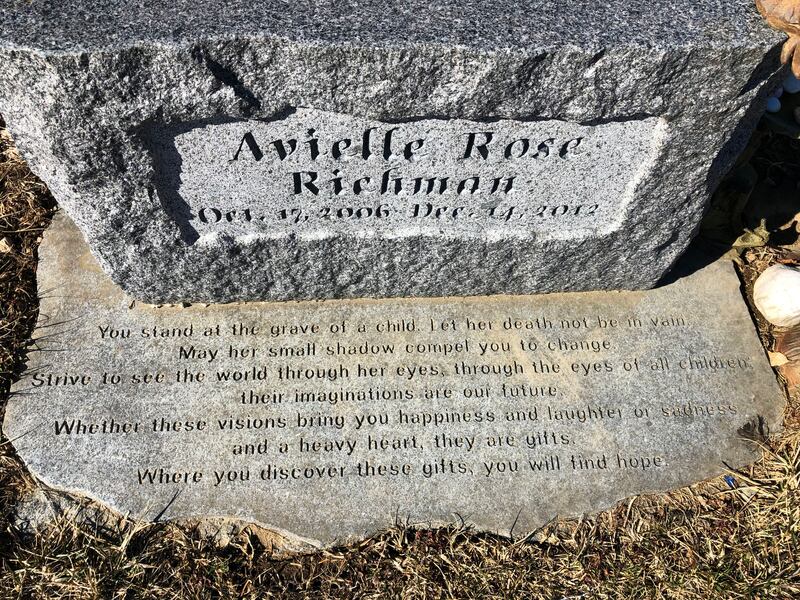 Avielle Rose
Richman
Oct. 17, 2006 - Dec. 14, 2012
You stand at the grave of a child. Let her death not be in vain.
May her small shadow compel you to change.
Strive to see the world through her eyes, through the eyes of all children,
their imaginations are our future.
Whether these visions bring you happiness and laughter or sadness
and a heavy heart, they are gifts.
Where you discover these gifts, you will find hope.